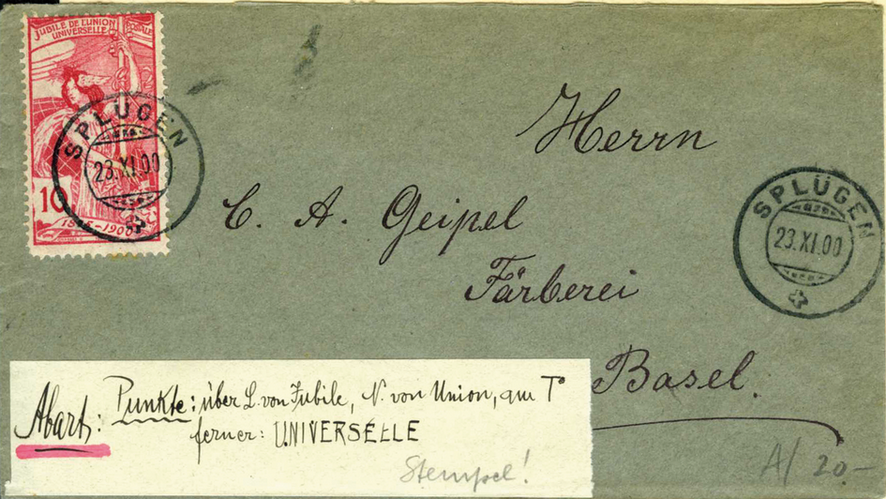 JUBILÉ DE L'UNION
UNIVERSELLE POSTALE
10
1875-1900
SPLÜGEN
23.XI.00
Herrn
C. A. Geipel
Färberei
Basel.
SPLÜGEN
23.XI.00
Abart: Punkte: über L von Jubile, N. von Union, am T°
ferner: U.NIVERSELLE
Stempel!
A/ 20.-